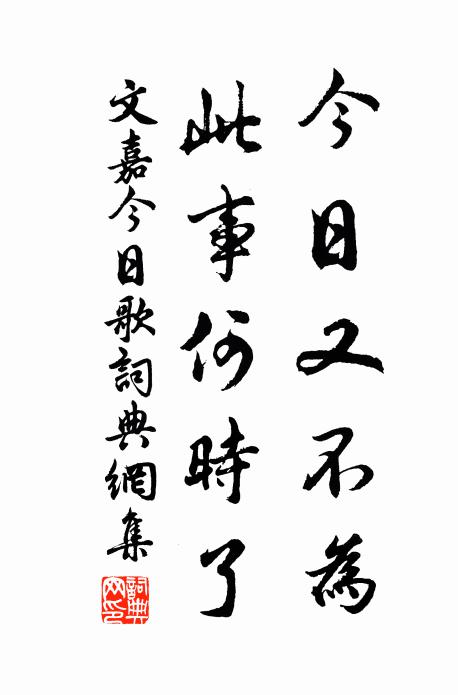 今日又不為
此事何時了
文嘉今日歌詞典網集
詞典網印